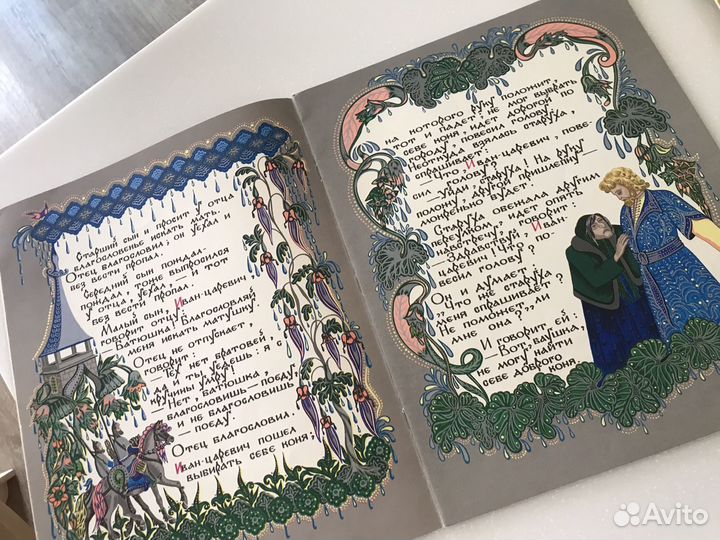 Старший сын и просит у отца
благословенье искать мать.
Отец благословил; он уехал и
без вести пропал.
Середний сын пождал-
пождал, тоже выпросился
у отца, уехал – и тот
без вести пропал.
Малый сын, Иван-царевич,
говорит отцу:
– Батюшка! Благословляй
меня искать матушку!
Отец не отпускает,
говорит:
– Тех нет братовей,
да и ты уедешь: я с
кручины умру!
– Нет, батюшка,
благословишь – поеду,
и не благословишь
– поеду.
Отец благословил.
Иван-царевич пошел
выбирать себе коня;
на которого руку положит,
тот и падет; не мог выбрать
себе коня, идет дорогой по
городу, повесил голову.
Неоткуда взялась старуха,
спрашивает:
– Что Иван-царевич, пове-
сил голову?
– Уйди, старуха! На руку
положу, другой пришлепну –
мокренько будет.
Старуха обежала другим
переулком, идет опять
навстречу, говорит:
– Здравствуй, Иван-
царевич! Что по-
весил голову?
Он и думает:
„Что же старуха
меня спрашивает?
Не поможет ли
мне она?“
И говорит ей:
– Вот, баушка,
не могу найти
себе доброго
коня.
Avito